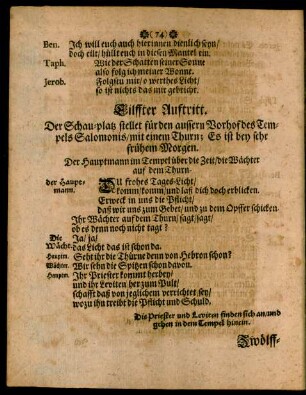 (74)
Ben. Ich will euch auch hierinnen dienlich seyn/
doch eilt/ hüllt euch in diesen Mantel ein.
Taph. Wie der Schatten seiner Sonne
also folg ich meiner Wonne.
Jerob. Folgstu mir/ werthes Licht/
so ist nichts das mir gebricht.
Eilffter Aufftritt.
Der Schau-platz stellet für den äussern Vorhof des Tem-
pels Salomonis/ mit einem Thurn: Es ist bey sehr
frühem Morgen.
Der Hauptmann im Tempel über die Zeit/ die Wächter
auf dem Thurn.
der Haupt-
mann. DU frohes Tages-Licht/
komm/ komm/ und laß dich doch erblicken.
Erweck in uns die Pflicht/
daß wir uns zum Gebet/ und zu dem Opffer schicken
Ihr Wächter auf dem Thurn/ sagt/ sagt/
ob es denn noch nicht tagt?
Die Ja/ ja/
Wächt. das Licht das ist schon da.
Hauptm. Seht ihr die Thürne denn von Hebron schon?
Wächter. Wir sehn die Spitzen schon davon.
Hauptm. Ihr Priester kommt herbey/
und ihr Leviten her zum Pult/
schafft daß von jeglichem verrichtet sey/
wozu ihn treibt die Pflicht und Schuld.
Die Priester und Leviten finden sich an/ und
gehen in dem Tempel hinein.
Zwölff-